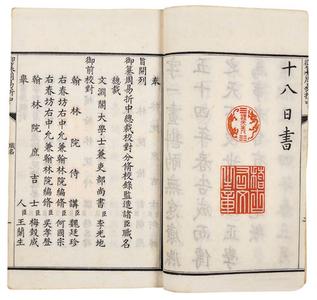 十八日書
奉
旨開列
御纂周易折中總裁校對分修校錄監造諸臣職名
總裁
文淵閣大學士兼吏部尚書臣李光地
御前校對
翰林院侍講臣魏廷珍
右春坊右中允兼翰林院編修臣何國宗
右春坊右中允兼翰林院編修臣吳孝登
翰林院庶吉士臣梅瑴成
人臣王蘭生
職名